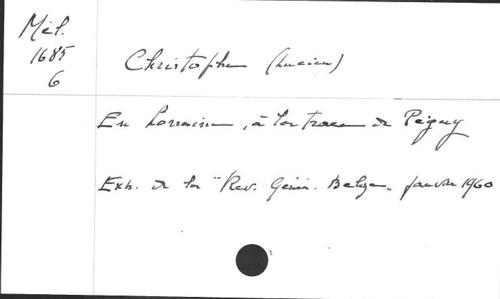 Mél.
1685
6
Christophe (Lucien)
En Lorraine, à la trace de Péguy
Ext. de la "Rev. Génér. Belge", janvier 1960